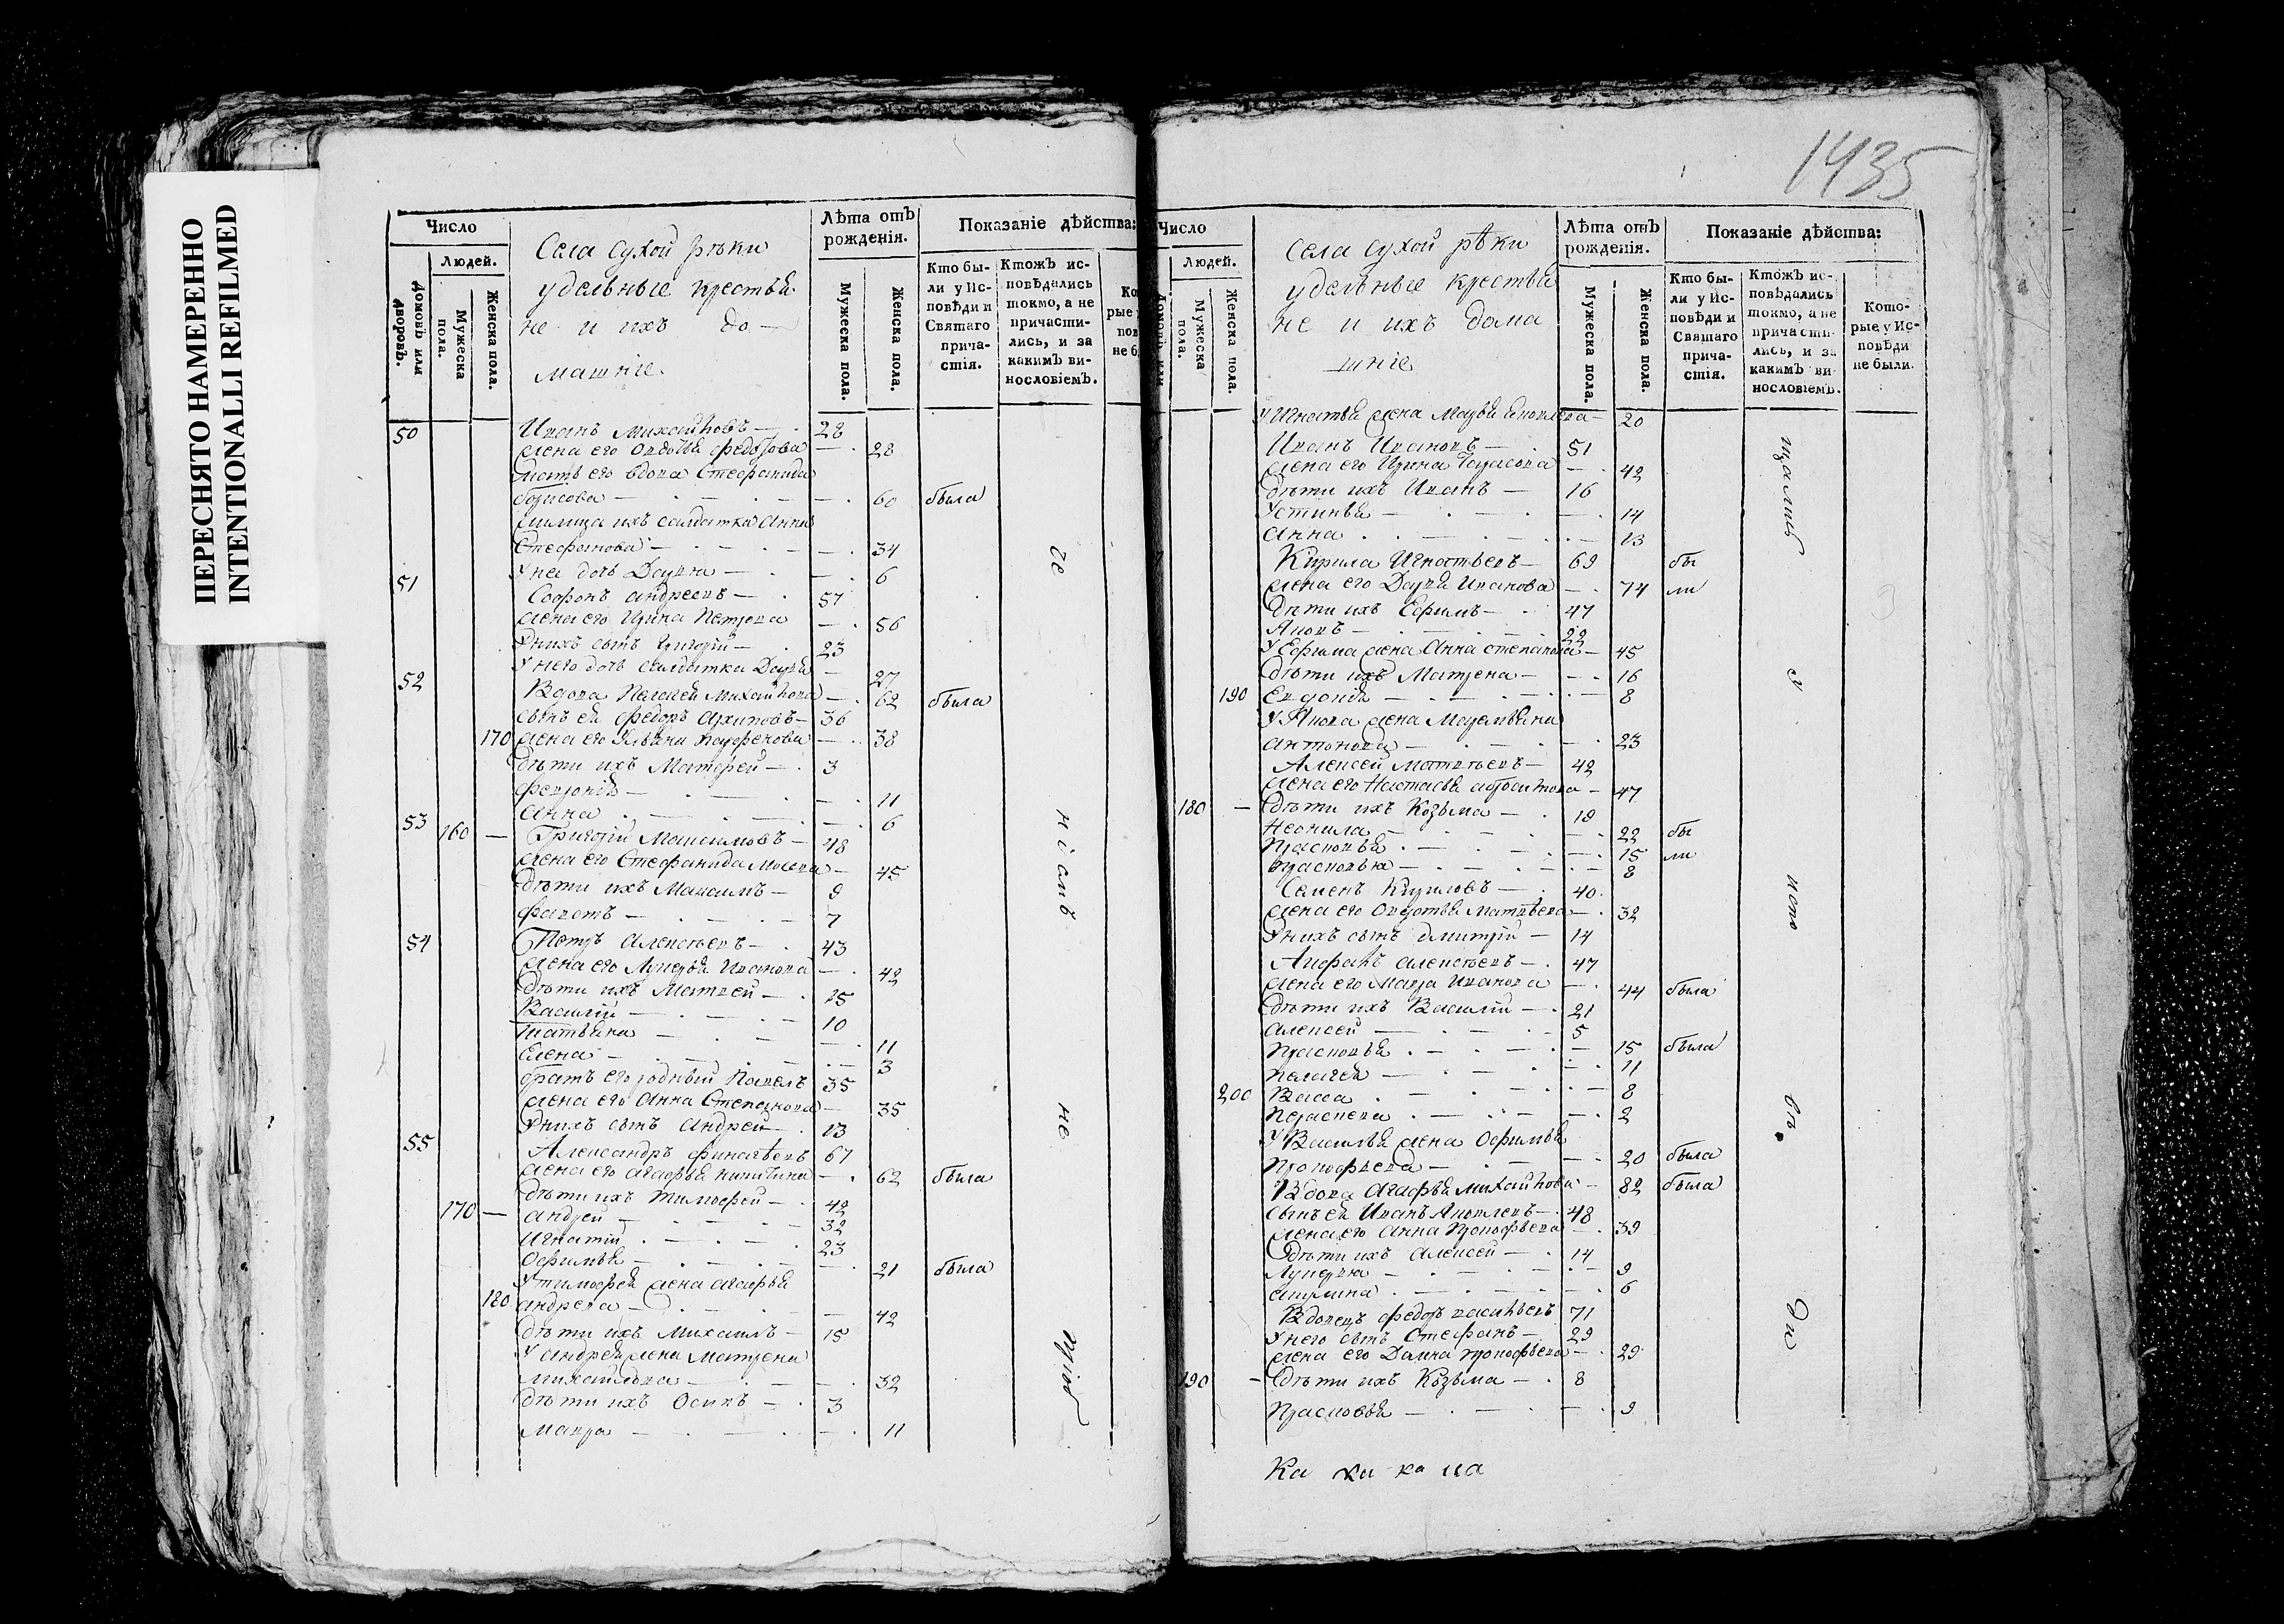 ПЕРЕСНЯТО НАМЕРЕННО
INTENTIONALLI REFILMED
Число
Людей.
Домовъ или дворовъ.
Мужеска пола.
Женска пола.
Села Сухой рѣки
удельные крестья
не и ихъ до
машніе.
Лѣта отъ рожденія.
Мужеска пола.
Женска пола.
Показаніе дѣйства:
Кто бы-
ли у Ис-
повѣди и
Святаго
прича-
стія.
Ктожъ ис-
повѣдались
токмо, а не
причасти-
лись, и за
какимъ ви-
нословіемъ.
50 Иванъ Михайловъ — 28
жена его Овдотья Федотова — 28
мать его вдова Стефанида
борисова — 60 была
солдатка Анна
Стефанова — 34
У нея дочь Дарья — 6
51 Софонъ Андреевъ — 57
жена его Ирина Петрова — 56
У нихъ сынъ Григорій — 23
У него дочь солдатка Дарья — 27
52 Вдова Пелагея Михайлова — 62 была
сынъ ея Федоръ Архиповъ — 36
170 жена его Ульяна Парфенова — 38
дѣти ихъ Матфей — 3
Февронья — 11
Анна — 6
53 160 — Григорій Максимовъ — 48
жена его Стефанида Мосеева — 45
дѣти ихъ Максимъ — 9
Фавстъ — 7
54 Петръ Алексеевъ — 43
жена его Лукерья Иванова — 42
дѣти ихъ Матвей — 15
Василій — 10
Татьяна — 11
Елена — 3
братъ его родный Павелъ 35
жена его Анна Степанова — 35
У нихъ сынъ Андрей — 13
55 Александръ 67
жена его Агафья Никитина — 62 была
дѣти ихъ Тимофей — 42
170 — Андрей — 32
Игнатій — 23
Офимья — 21 была
У Тимофея жена Агафья
180 Андреева — 42
дѣти ихъ Михаилъ — 15
У Андрея жена Матрена
Михайлова — 32
дѣти ихъ Осипъ — 3
Мавра — 11
не
при
1435
Число
Людей.
Мужеска пола.
Женска пола.
Села Сухой рѣки
удельные крестья
не и ихъ дома
шніе
Лѣта отъ рожденія.
Мужеска пола.
Женска пола.
Показаніе дѣйства:
Кто бы-
ли у Ис-
повѣди и
Святаго
прича-
стія.
Ктожъ ис-
повѣдались
токмо, а не
причасти-
лись, и за
какимъ ви-
нословіемъ.
Кото-
рые у Ис-
повѣди
не были.
У Игнатья жена Марья Яковлева — 20
Иванъ Ивановъ — 51
жена его Ирина Тарасова — 42
дѣти ихъ Иванъ — 16
Устинья — 14
Анна — 13
Кирила Игнатьевъ — 69 бы
жена его Дарья Иванова — 74 ли
дѣти ихъ Ефимъ — 47
Яковъ — 22
У Ефима жена Анна Степанова — 45
дѣти ихъ Матрена — 16
190 Евдокія — 8
У Якова жена Маремьяна
Антонова — 23
Алексей Матвеевъ — 42
жена его Настасья — 47
180 — дѣти ихъ Козьма — 19
Неонила — 22 бы
Прасковья — 15 ли
Прасковья — 8
Семенъ Кириловъ — 40
жена его Овдотья Матвеева — 32
У нихъ сынъ Дмитрій — 14
Алексеевъ — 47
жена его Марья Иванова — 44 была
дѣти ихъ Василій — 21
Алексей — 5
Прасковья — 15 была
Пелагея — 11
200 Васса — 8
— 2
У Василья жена Офимья
Прокофьева — 20 была
Вдова Агафья Михайлова — 82 была
сынъ ея Иванъ Яковлевъ — 48
жена его Анна Прокофьева — 39
дѣти ихъ Алексей — 14
Лукерья — 9
Акулина — 6
Вдовецъ Федоръ Васильевъ 71
У него сынъ Стефанъ — 29
жена его Домна Прокофьева — 29
190 — дѣти ихъ Козьма — 8
Прасковья — 9